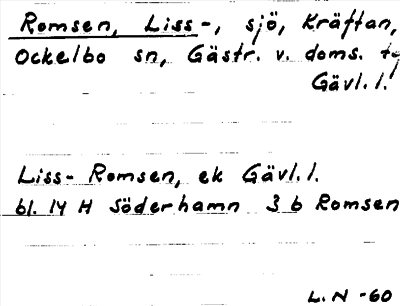 Romsen, Liss-, sjö, Kräftan,
Ockelbo sn, Gästr. v. doms. tg
Gävl.l.
Liss- Romsen, ek Gävl.l.
bl. 14 H Söderhamn 3 b Romsen
L.N -60